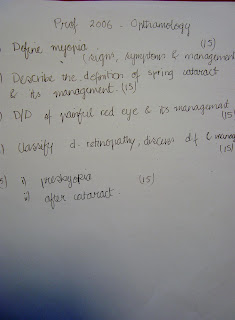 Prof 2006 - Opthamology
) Define myopia (15)
(signs, symptoms & management
) Describe the definition of spring cataract
& its management. (15)
) D/D of painful red eye & its managemnt
(15)
) Classify d. retinopathy, discuss d.f & mana
(15)
5) i) presbyopia (15)
ii) after cataract.